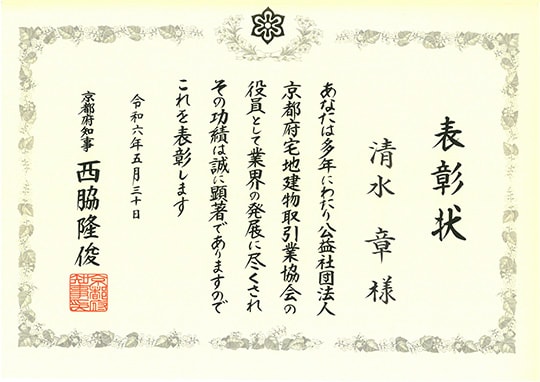 表彰状
清水 章 様
あなたは多年にわたり公益社団法人
京都府宅地建物取引業協会の
役員として業界の発展に尽くされ
その功績は誠に顕著でありますので
これを表彰します
令和六年五月三十日
京都府知事 西脇隆俊
京都府
知事之